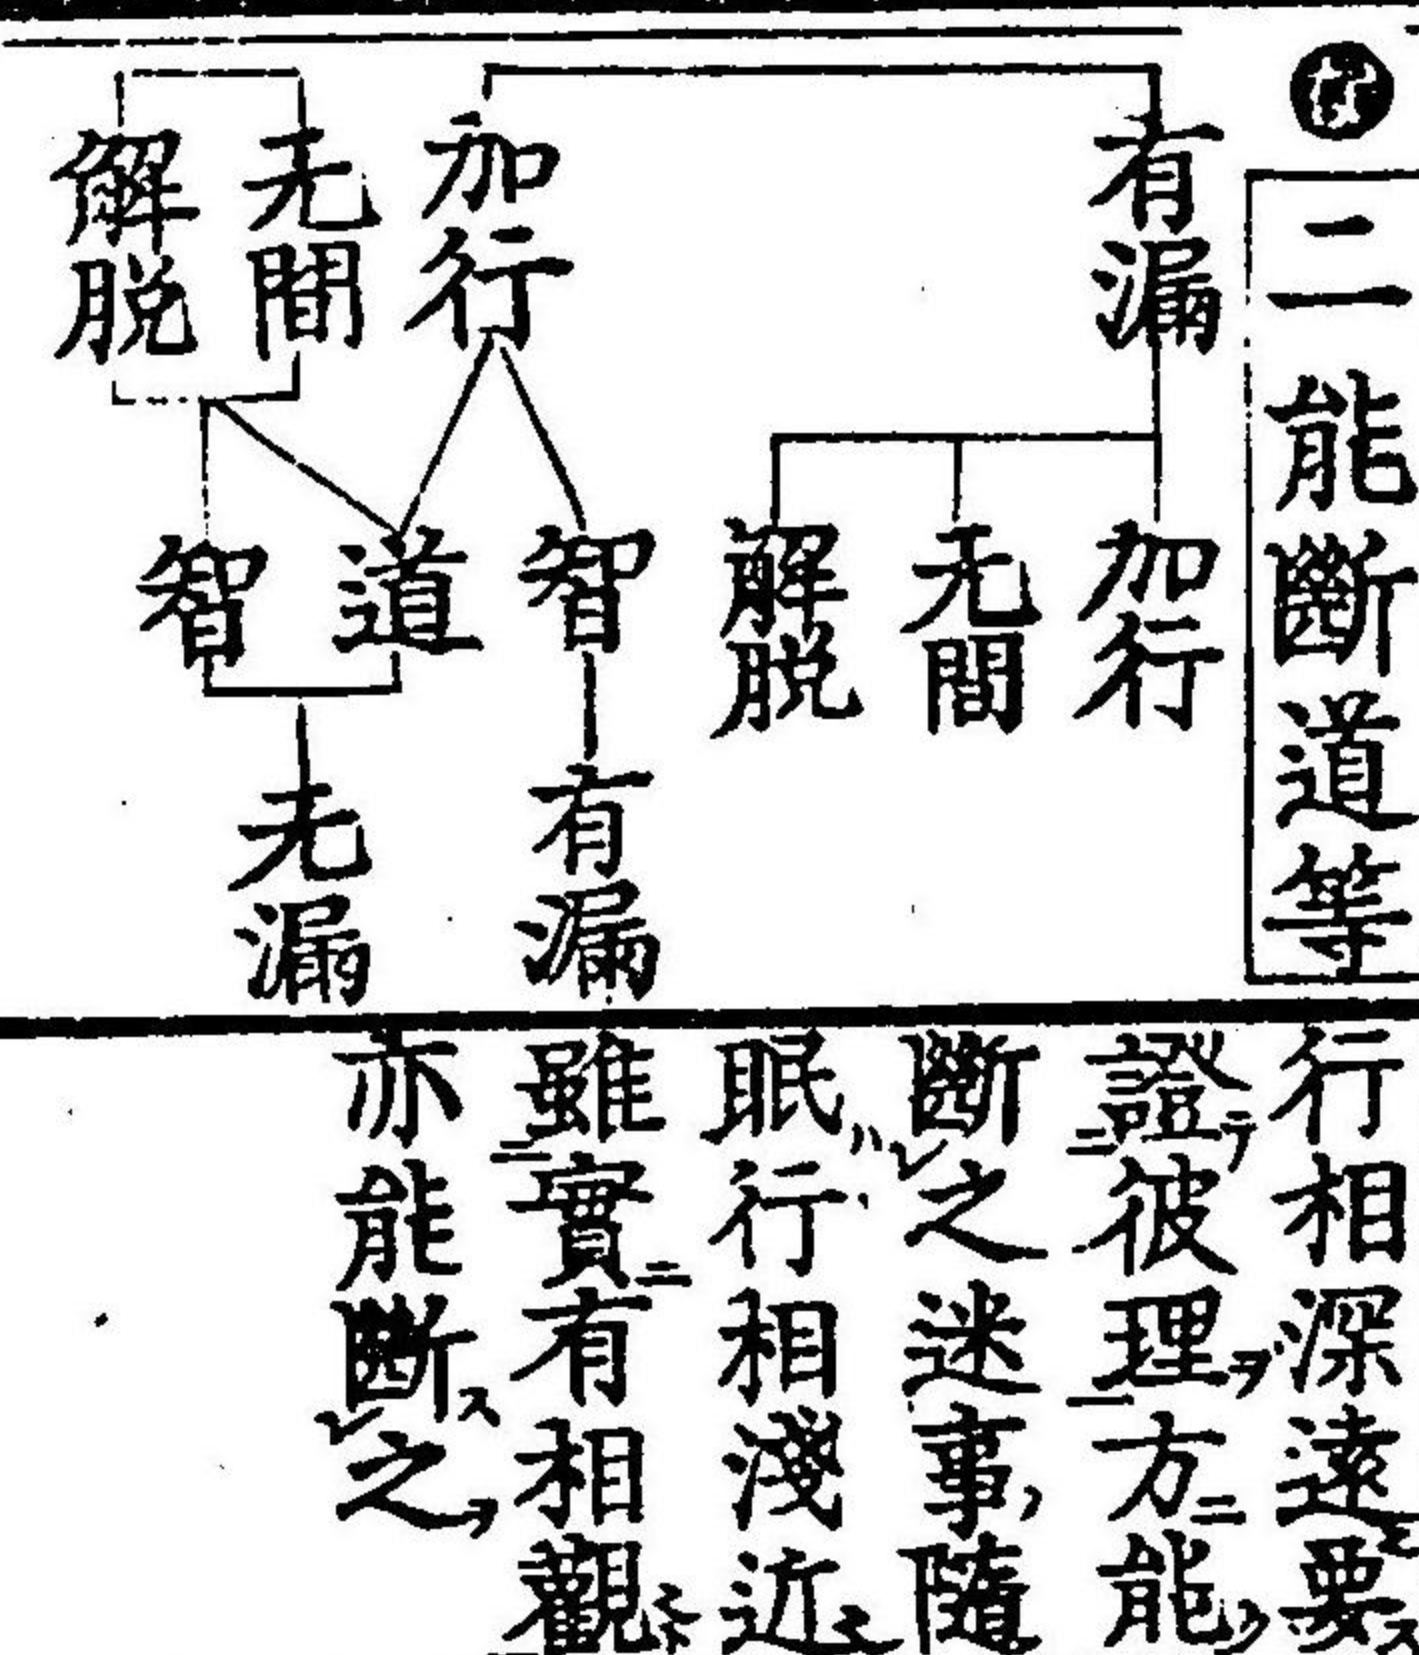 な
二 能斷道等
有漏
加行
无間
解脱
加行
无間
解脱
智
道
智
有漏
无漏
行相深遠要ス
證テ二彼理ヲ一方ニ能ク
斷レ之迷事ノ隨
眠ハ行相淺近
雖二實ニ有相觀
亦能斷スレ之ヲ